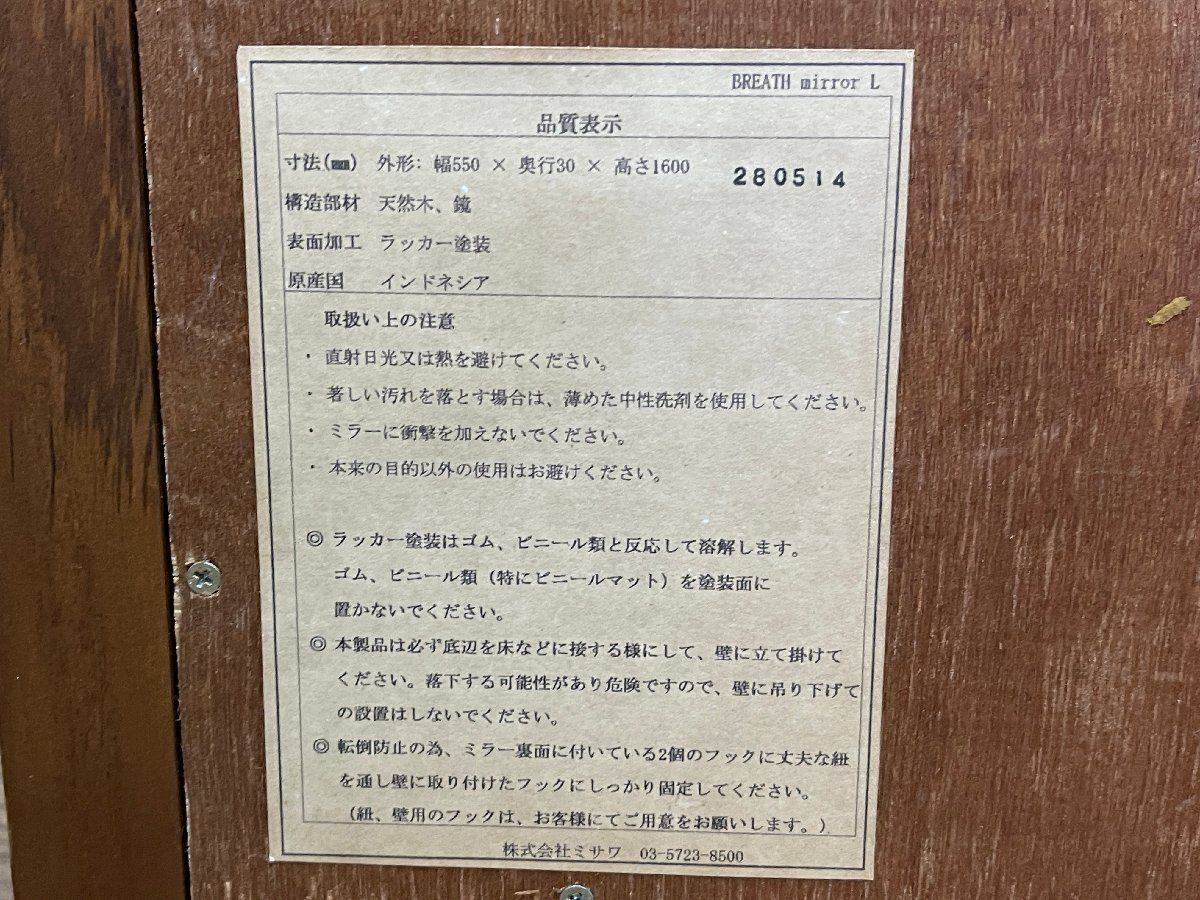 BREATH mirror L
品質表示
寸法(㎜) 外形: 幅550 × 奥行30 × 高さ1600 280514
構造部材 天然木、鏡
表面加工 ラッカー塗装
原産国 インドネシア
取扱い上の注意
・ 直射日光又は熱を避けてください。
・ 著しい汚れを落とす場合は、薄めた中性洗剤を使用してください。
・ ミラーに衝撃を加えないでください。
・ 本来の目的以外の使用はお避けください。
◎ ラッカー塗装はゴム、ビニール類と反応して溶解します。
ゴム、ビニール類（特にビニールマット）を塗装面に
置かないでください。
◎ 本製品は必ず底辺を床などに接する様にして、壁に立て掛けて
ください。落下する可能性があり危険ですので、壁に吊り下げて
の設置はしないでください。
◎ 転倒防止の為、ミラー裏面に付いている2個のフックに丈夫な紐
を通し壁に取り付けたフックにしっかり固定してください。
（紐、壁用のフックは、お客様にてご用意をお願いします。）
株式会社ミサワ 03-5723-8500